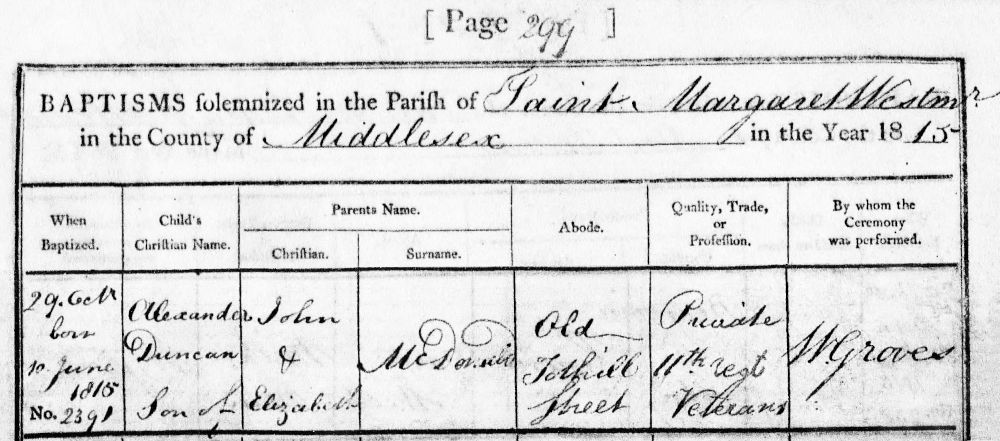 [ Page 299 ]
BAPTISMS solemnized in the Parish of Saint Margaret Westmr
in the County of Middlesex in the Year 18 15
When Baptized.
Child's Christian Name.
Parents Name.
Christian.
Surname.
Abode.
Quality, Trade, or Profession.
By whom the Ceremony was performed.
29. Octr
born
10 June
1815
No. 2391
Alexander
Duncan
Son of
John
&
Elizabeth
McDonald
Old
Tothill
Street
Private
11th regt
Veterans
W Groves